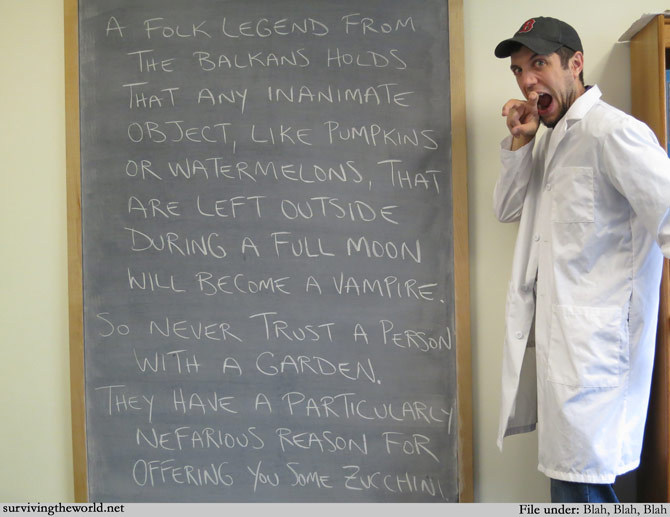 A FOLK LEGEND FROM
THE BALKANS HOLDS
THAT ANY INANIMATE
OBJECT, LIKE PUMPKINS
OR WATERMELONS, THAT
ARE LEFT OUTSIDE
DURING A FULL MOON
WILL BECOME A VAMPIRE.
SO NEVER TRUST A PERSON
WITH A GARDEN.
THEY HAVE A PARTICULARLY
NEFARIOUS REASON FOR
OFFERING YOU SOME ZUCCHINI.
B
survivingtheworld.net
File under: Blah, Blah, Blah